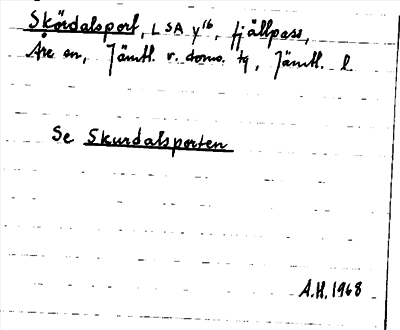 Skördalsport, L SA y16, fjällpass,
Åre sn, Jämtl. v. doms. tg, Jämtl. l
Se Skurdalsporten
A.H. 1968